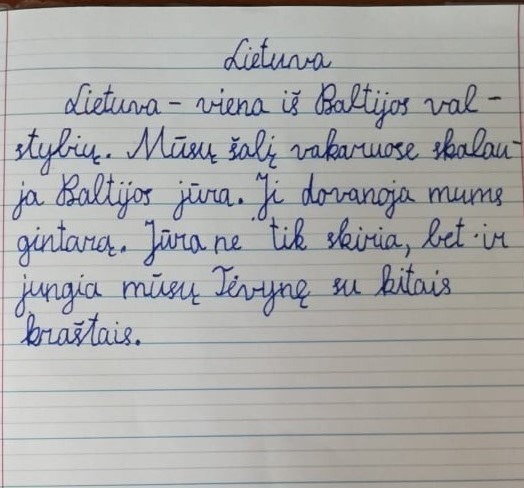 Lietuva
Lietuva - viena iš Baltijos val-
stybių. Mūsų šalį vakaruose skalau-
ja Baltijos jūra. Ji dovanoja mums
gintarą. Jūra ne tik skiria, bet ir
jungia mūsų Tėvynę su kitais
kraštais.